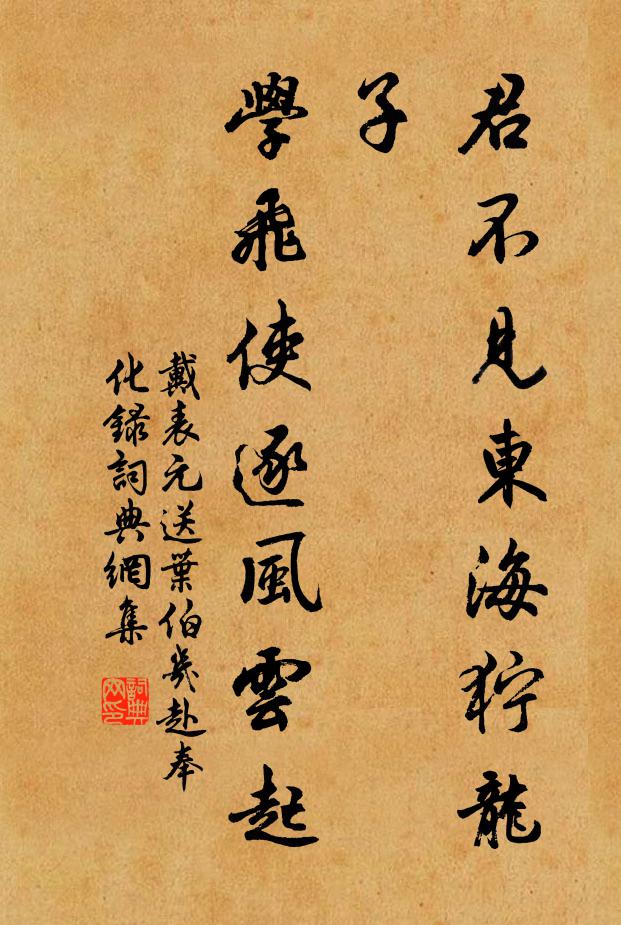 君不見東海獰龍
子
學飛使逐風雲起
戴表元送葉伯幾赴奉
化錄詞典網集
詞典網印